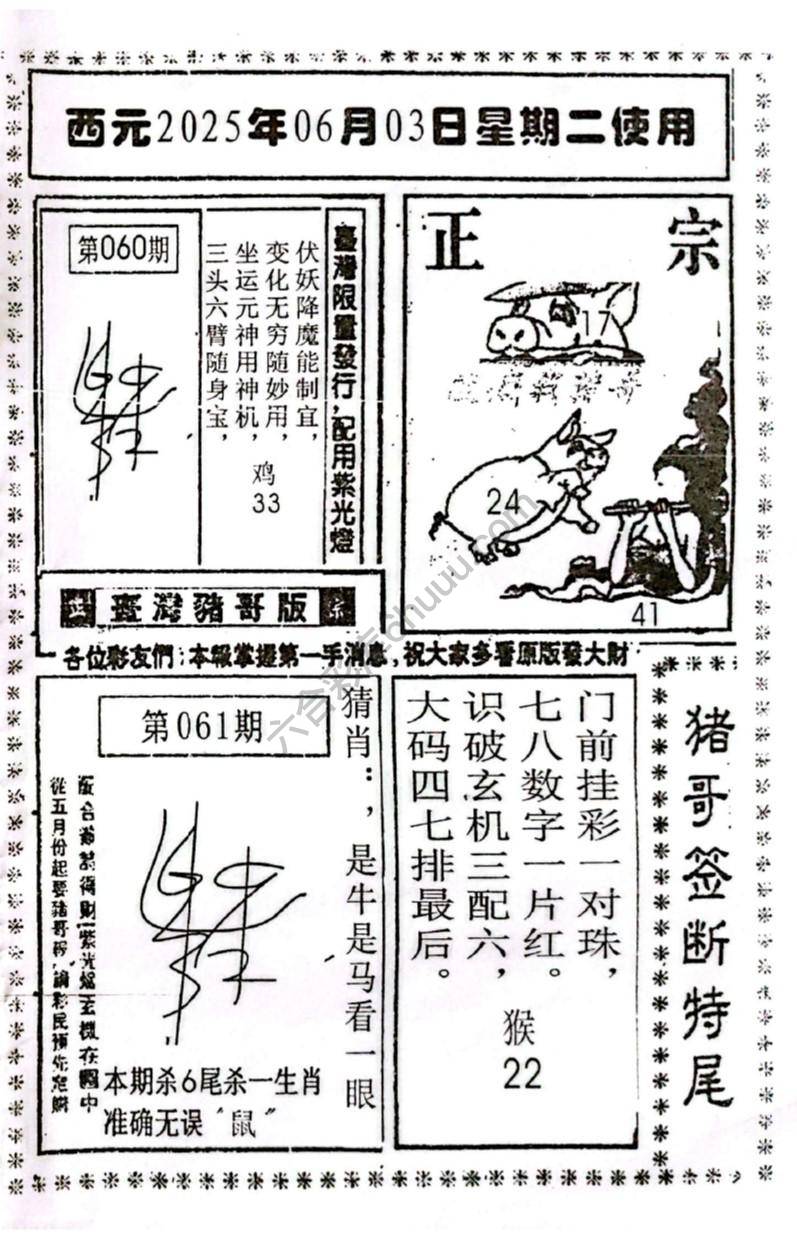 西元2025年06月03日星期二使用
第060期
臺灣限量發行,配用紫光燈
伏妖降魔能制宜,
变化无穷随妙用,
坐运元神用神机,
三头六臂随身宝,
鸡
33
正宗
17
24
41
正 臺灣豬哥版 宗
各位彩友們:本報掌握第一手消息,祝大家多看原版發大財
第061期
猜肖:,是牛是马看一眼
從五月份起要豬哥報,請彩民預先定購
本期杀6尾杀一生肖
准确无误“鼠”
门前挂彩一对珠,
七八数字一片红。
识破玄机三配六,
大码四七排最后。
猴
22
猪哥签断特尾
六合彩库chuuu.com